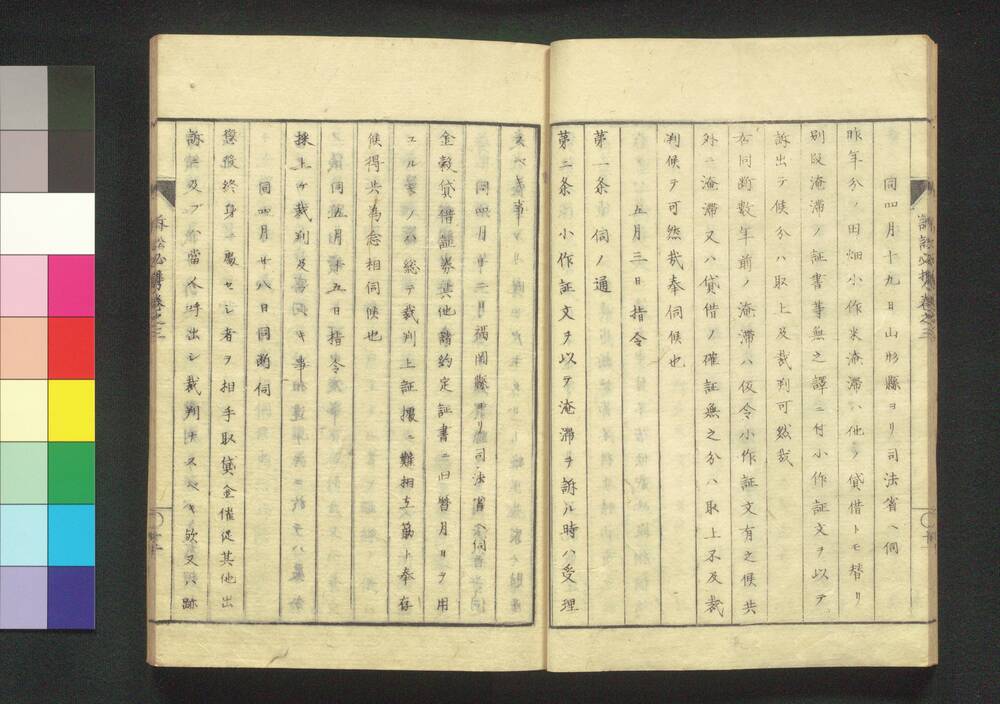 同四月十九日山形縣ヨリ司法省ヘ伺
昨年分ノ田畑小作米淹滞ハ他ノ貸借トモ替リ
別段淹滞ノ証書等無之譯ニ付小作証文ヲ以テ
訴出テ候分ハ取上及裁判可然哉
右同断数年前ノ淹滞ハ仮令小作証文有之候共
外ニ淹滞又ハ貸借ノ確証無之分ハ取上不及裁
判候テ可然哉奉伺候也
五月三日指令
第一条伺ノ通
第二条小作証文ヲ以テ淹滞ヲ訴ル時ハ受理
スヘキ事
同四月廿三日福岡縣ヨリ司法省ヘ伺
金穀貸借証券其他諸約定証書ニ旧暦月日ヲ用
ユルモノハ総テ裁判上証拠ニ難相立筋ト奉存
候得共為念相伺候也
同五月十五日指令
採上ケ裁判及フヘキ事
同四月廿八日同断伺
懲役終身ニ處セシ者ヲ相手取貸金催促其他出
訴ニ及フハ當人呼出シ裁判ヲスヘキ歟又ハ跡
訴訟必携巻之三
訴訟必携巻之三